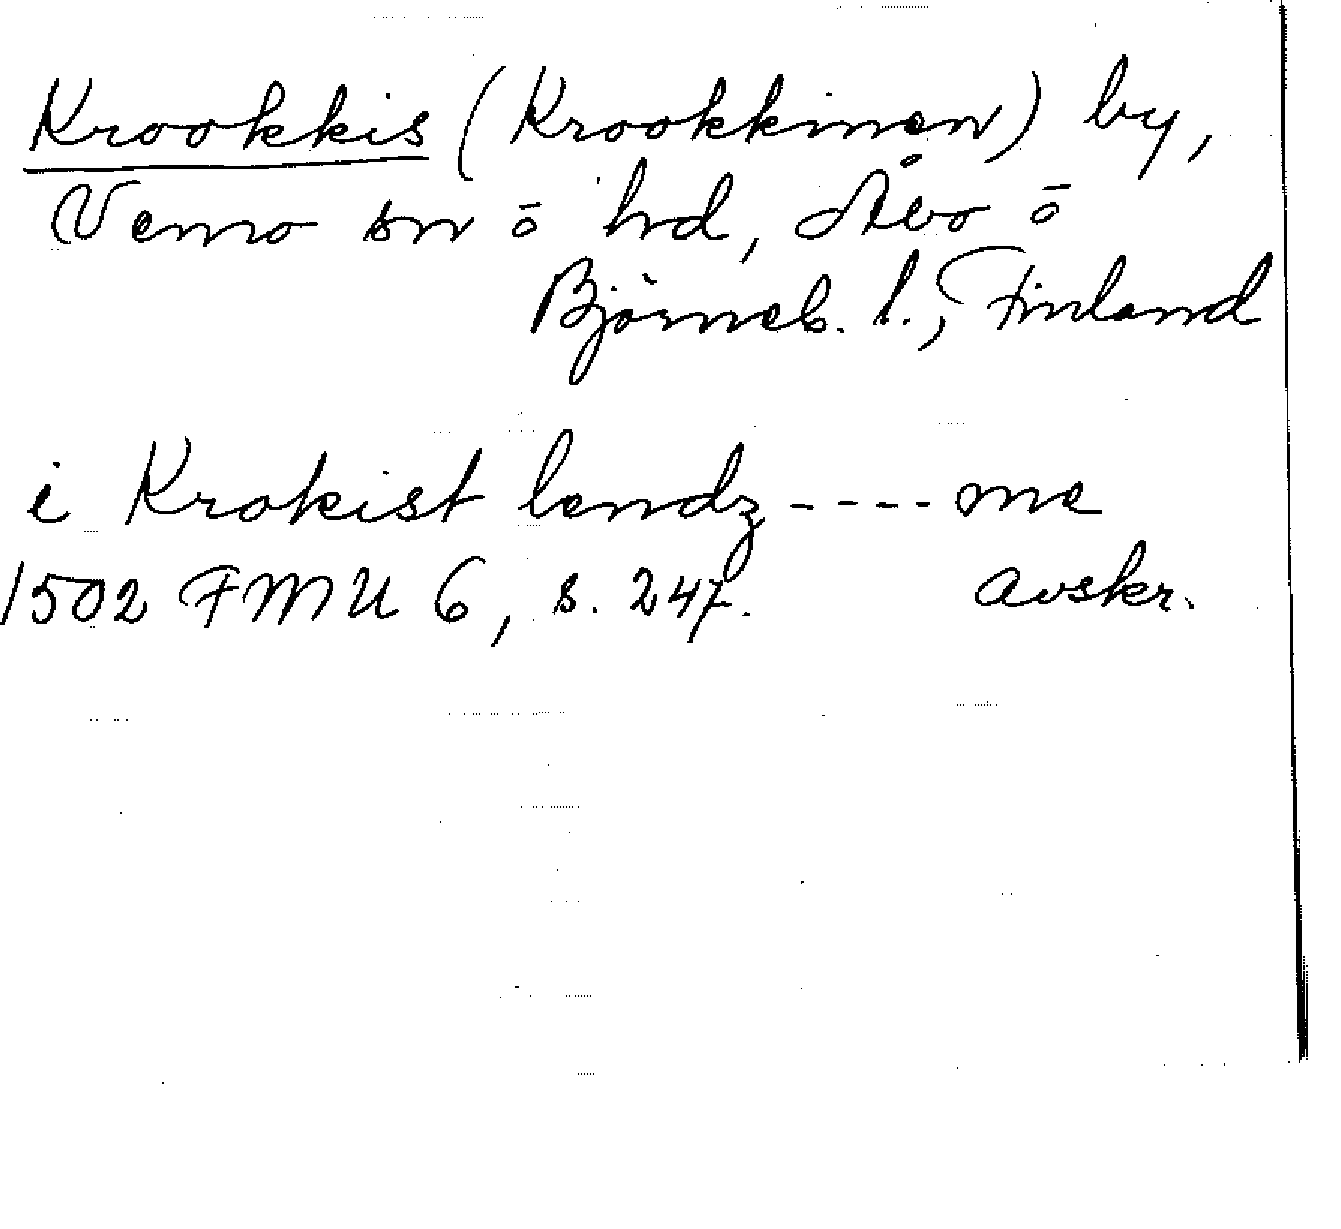 Krookkis (Krookkinen) by,
Vemo sn ō hd, Åbo ō
Björneb. l., Finland
i Krokist lendz ---- me
1502 FMU 6, s. 247. avskr.